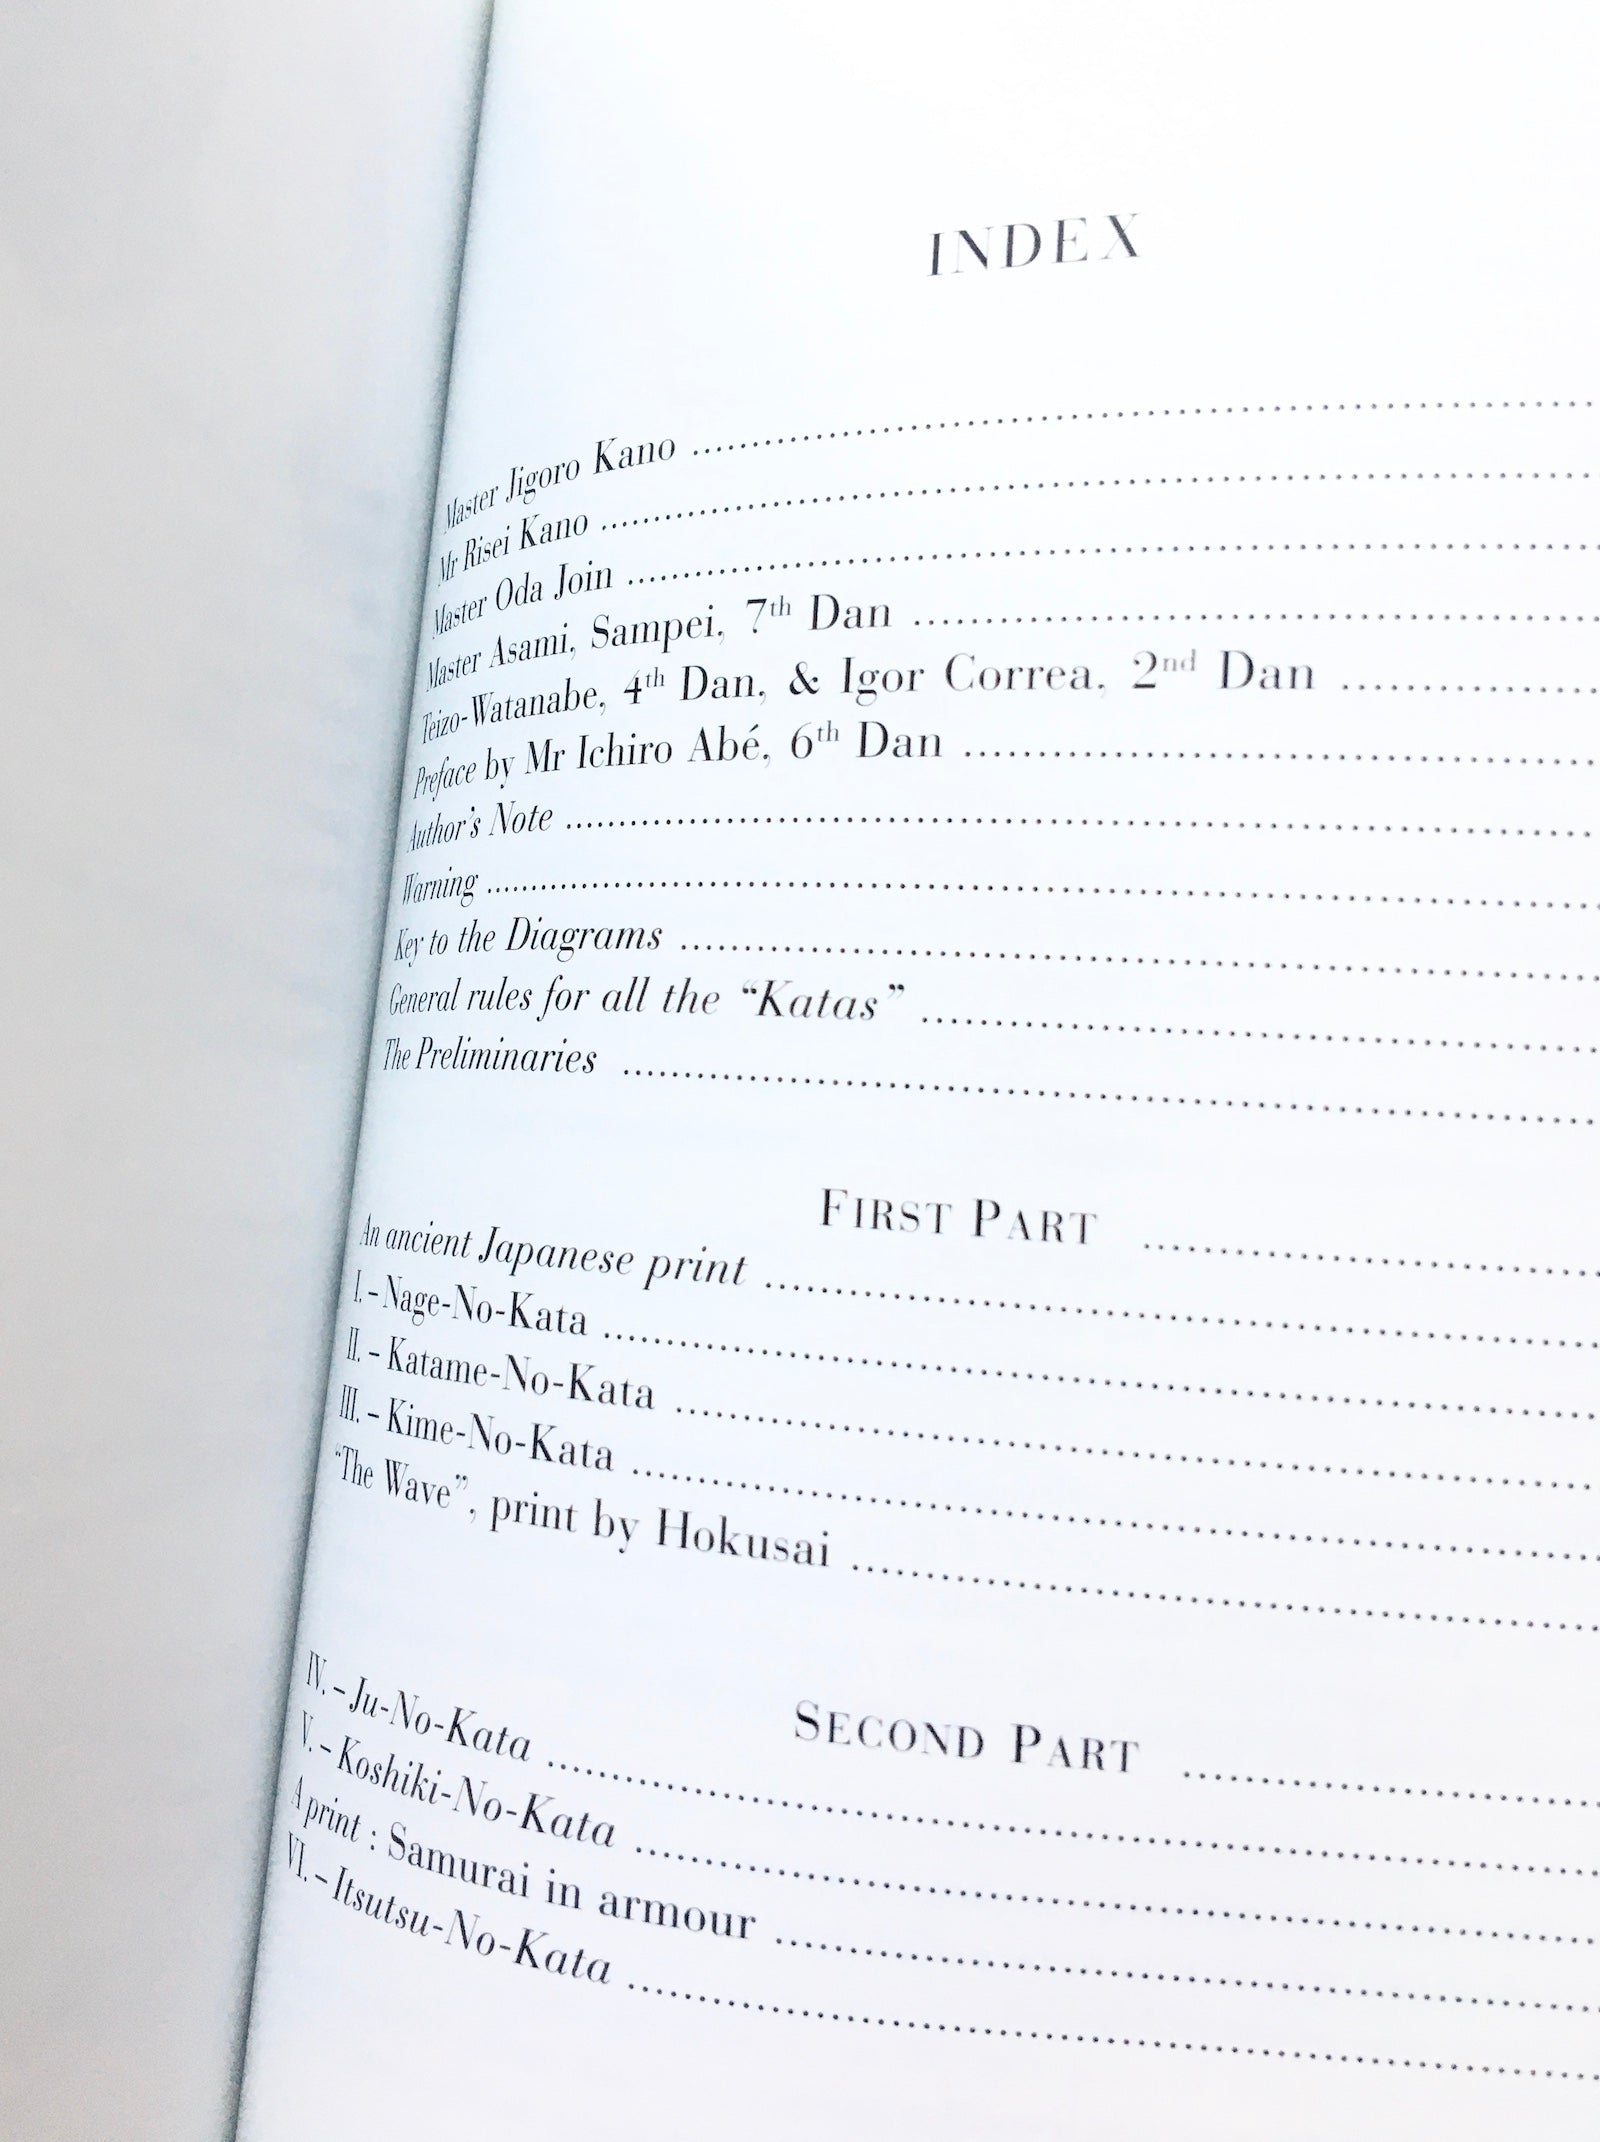 INDEX
Master Jigoro Kano ........................................
Mr Risei Kano ........................................
Master Oda Join ........................................
Master Asami, Sampei, 7th Dan ........................................
Teizo-Watanabe, 4th Dan, & Igor Correa, 2nd Dan ....................
Preface by Mr Ichiro Abé, 6th Dan ........................................
Author's Note ........................................
Warning ........................................
Key to the Diagrams ........................................
General rules for all the “Katas” ........................................
The Preliminaries ........................................
FIRST PART ........................................
An ancient Japanese print ........................................
I. – Nage-No-Kata ........................................
II. – Katame-No-Kata ........................................
III. – Kime-No-Kata ........................................
“The Wave”, print by Hokusai ........................................
SECOND PART ........................................
IV. – Ju-No-Kata ........................................
V. – Koshiki-No-Kata ........................................
A print : Samurai in armour ........................................
VI. – Itsutsu-No-Kata ........................................